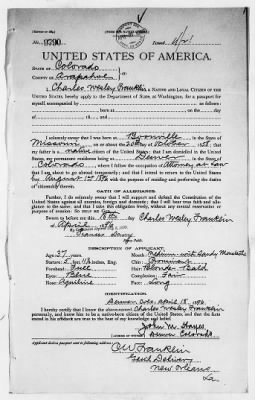 No. 9390
Issued
UNITED STATES OF AMERICA.
STATE OF Colorado
COUNTY OF Arapahoe
I, Charles Wesley Franklin, A NATIVE AND LOYAL CITIZEN OF THE
UNITED STATES, hereby apply to the Department of State, at Washington, for a passport for
myself, accompanied by
as follows: born at on the day of
and
I solemnly swear that I was born at in the State of
Missouri, on or about the day of October, 18
my father is a native citizen of the United States; that I am domiciled in the United
States, my permanent residence being at Denver in the State of
Colorado, where I follow the occupation of Attorney at Law
that I am about to go abroad temporarily; and that I intend to return to the United States
with the purpose of residing and performing the duties
of citizenship therein.
OATH OF ALLEGIANCE.
Further, I do solemnly swear that I will support and defend the Constitution of the
United States against all enemies, foreign and domestic; that I will bear true faith and
allegiance to the same; and that I take this obligation freely, without any mental reservation or
purpose of evasion: SO HELP ME GOD.
Sworn to before me this day
of April Charles Wesley Franklin
Notary Public.
DESCRIPTION OF APPLICANT.
Age: 37 years. Mouth: Medium - with Sandy Mustache
Stature: 5 feet inches, Eng. Chin: Prominent
Forehead: Full Hair: Blonde - Bald
Eyes: Blue Complexion: Fair
Nose: Aquiline Face: Long
IDENTIFICATION.
Denver, Colo. April 18, 1896
I hereby certify that I know the above-named Charles Wesley Franklin
personally, and know him to be a native-born citizen of the United States, and that the facts
stated in his affidavit are true to the best of my knowledge and belief.
John M.
Denver Colorado
C. W. Franklin
Genl Delivery
New Orleans
La.